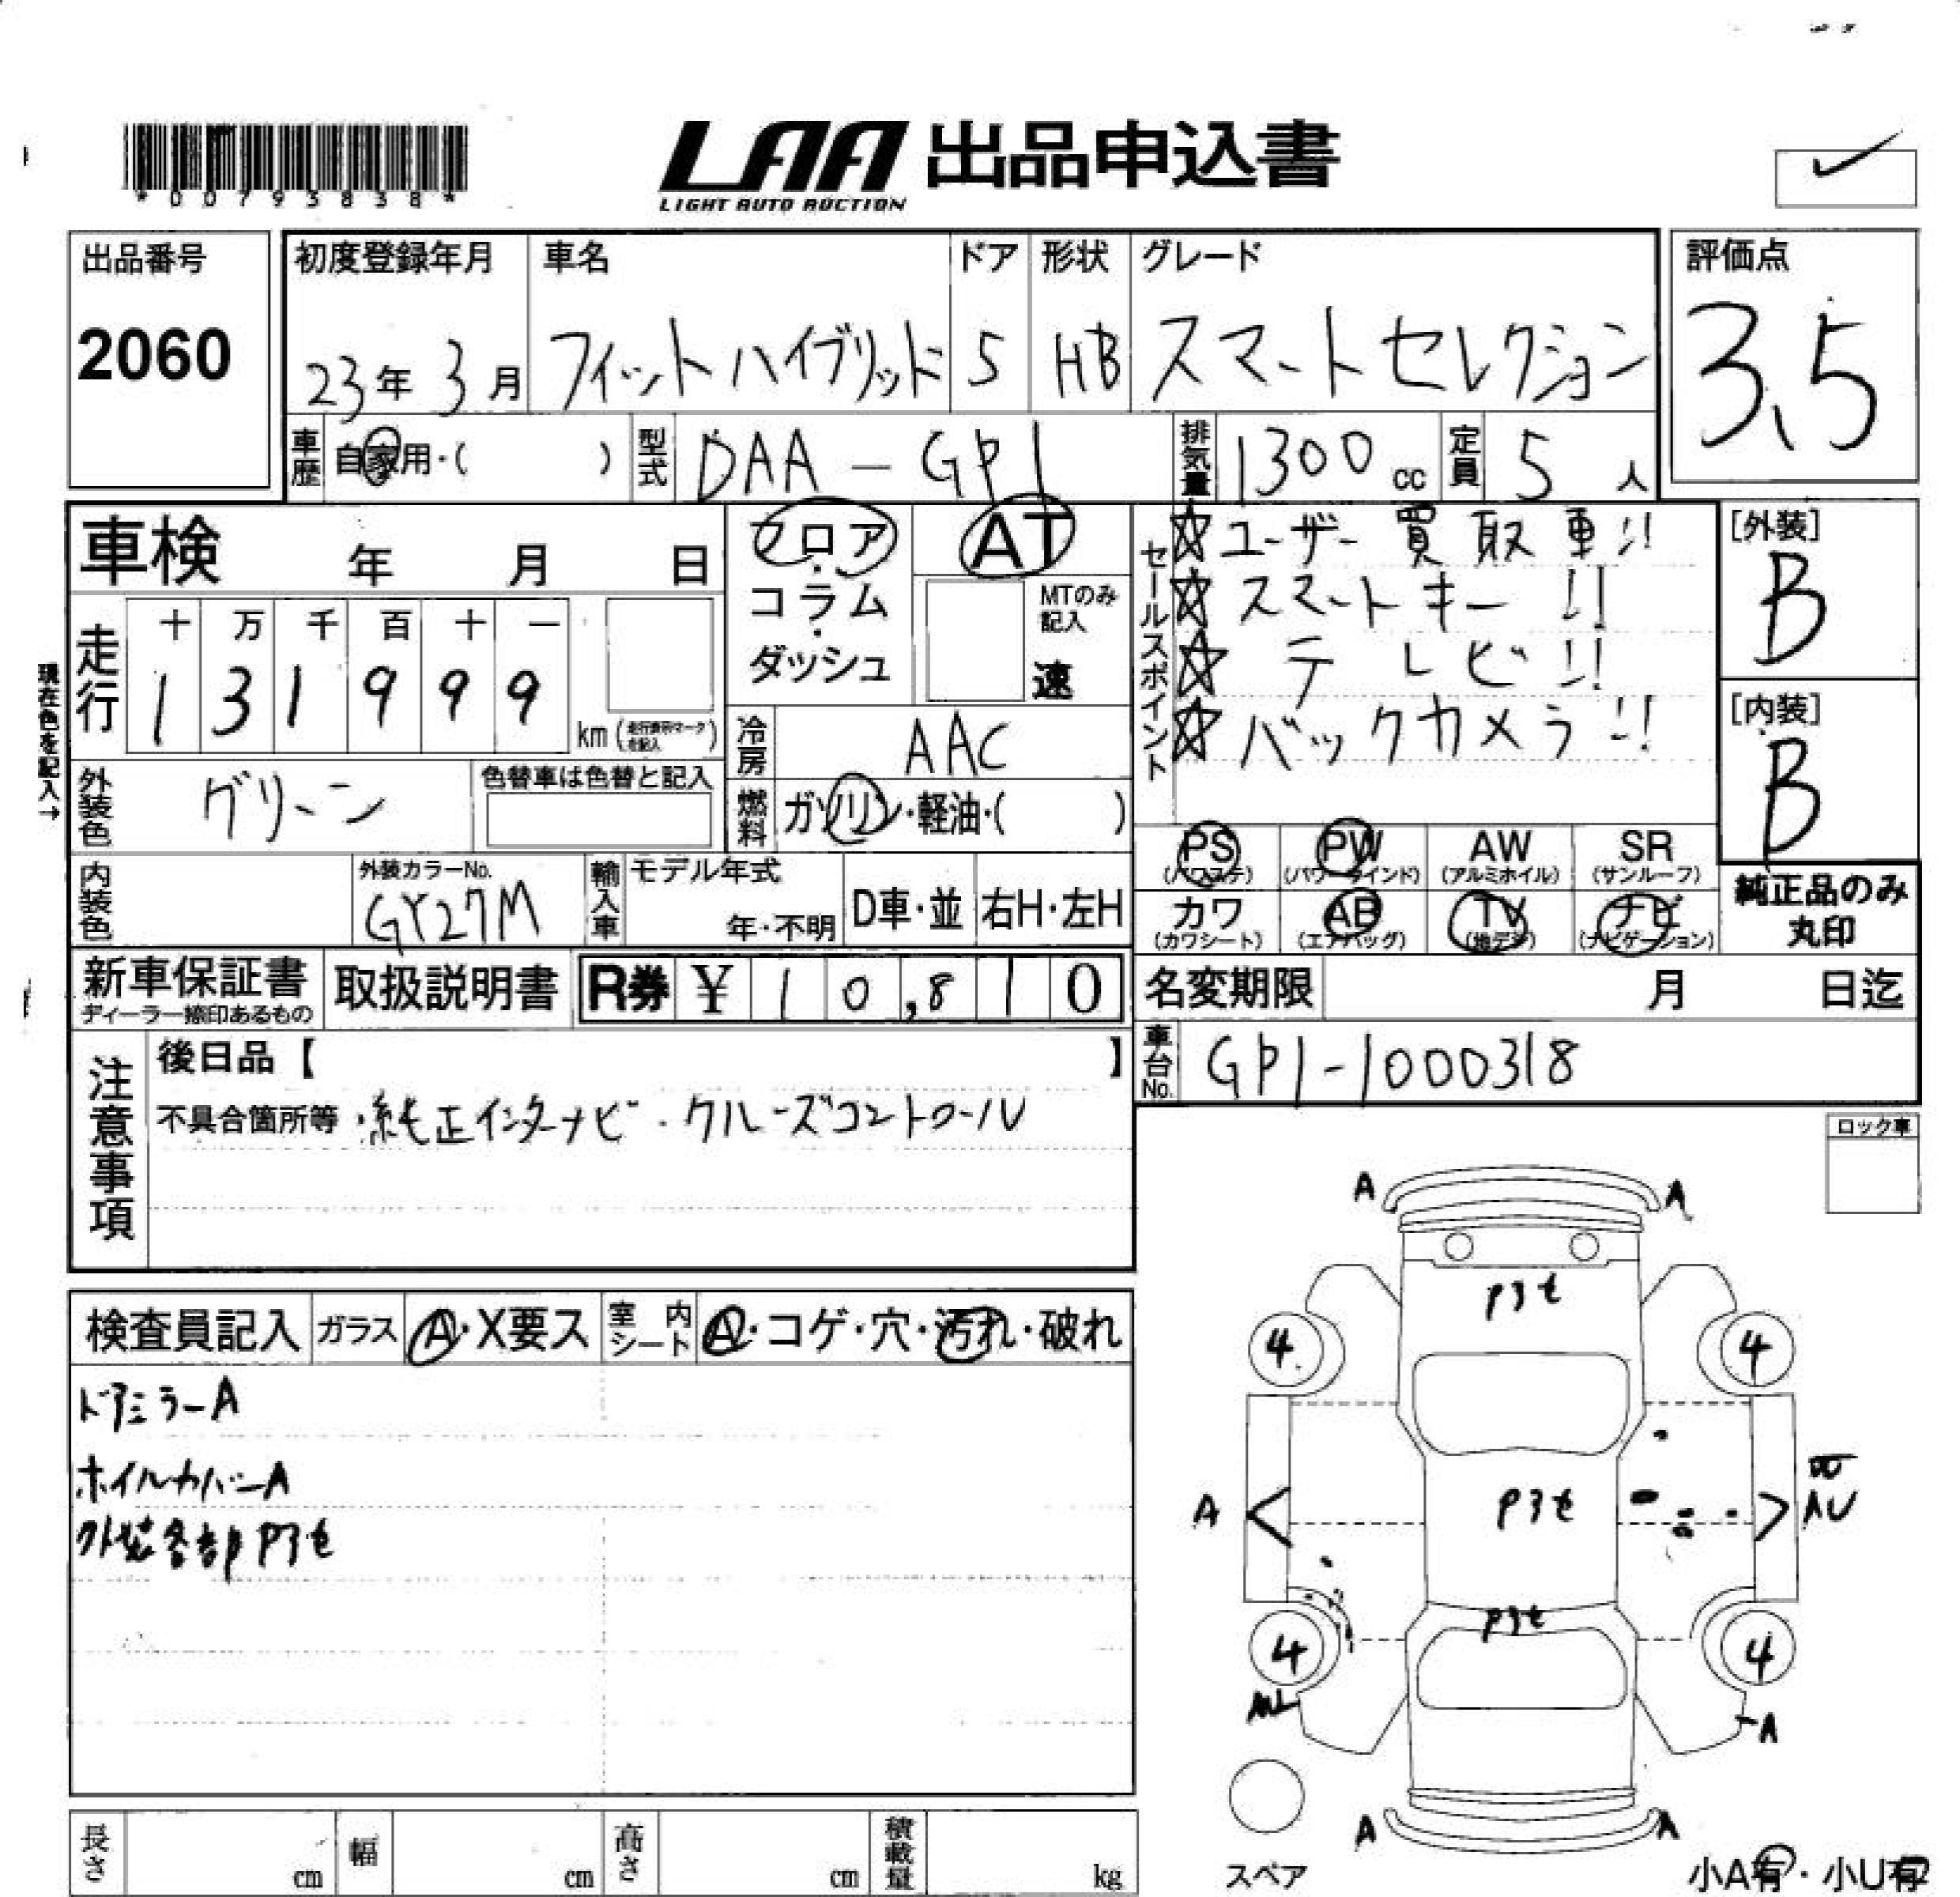 *00793838*
LAA 出品申込書
LIGHT AUTO AUCTION
出品番号
2060
初度登録年月
23年 3月
車名
フィットハイブリッド
ドア
5
形状
HB
グレード
スマートセレクション
評価点
3.5
車歴 自家用・( )
型式 DAA-GP1
排気量 1300 cc
定員 5 人
車検 年 月 日
フロア・コラム・ダッシュ
AT
MTのみ記入
速
セールスポイント
☆ユーザー買取車!!
☆スマートキー!!
☆テレビ!!
☆バックカメラ!!
[外装]
B
[内装]
B
現在色を記入→
走行
十 万 千 百 十 一
1 3 1 9 9 9 km
冷房 AAC
外装色 グリーン
色替車は色替と記入
燃料 ガソリン・軽油・( )
PS (パワステ)
PW (パワーウインド)
AW (アルミホイル)
SR (サンルーフ)
カワ (カワシート)
AB (エアバッグ)
TV (地デジ)
ナビ (ナビゲーション)
純正品のみ
丸印
内装色
外装カラーNo.
GY27M
輸入車
モデル年式
年・不明
D車・並
右H・左H
新車保証書
ディーラー捺印あるもの
取扱説明書
R券 ¥ 1 0,8 1 0
名変期限 月 日迄
車台No. GP1-1000318
注意事項
後日品【 】
不具合箇所等 ・純正インターナビ・クルーズコントロール
ロック車
検査員記入
ガラス A・X要ス
室内シート A・コゲ・穴・汚れ・破れ
ドアミラーA
ホイルカバーA
外装各部P3セ
A A
P3セ
4 4
A P3セ AU
P3セ
4 4
A
A A
スペア
小A有・小U有
長さ cm
幅 cm
高さ cm
積載量 kg